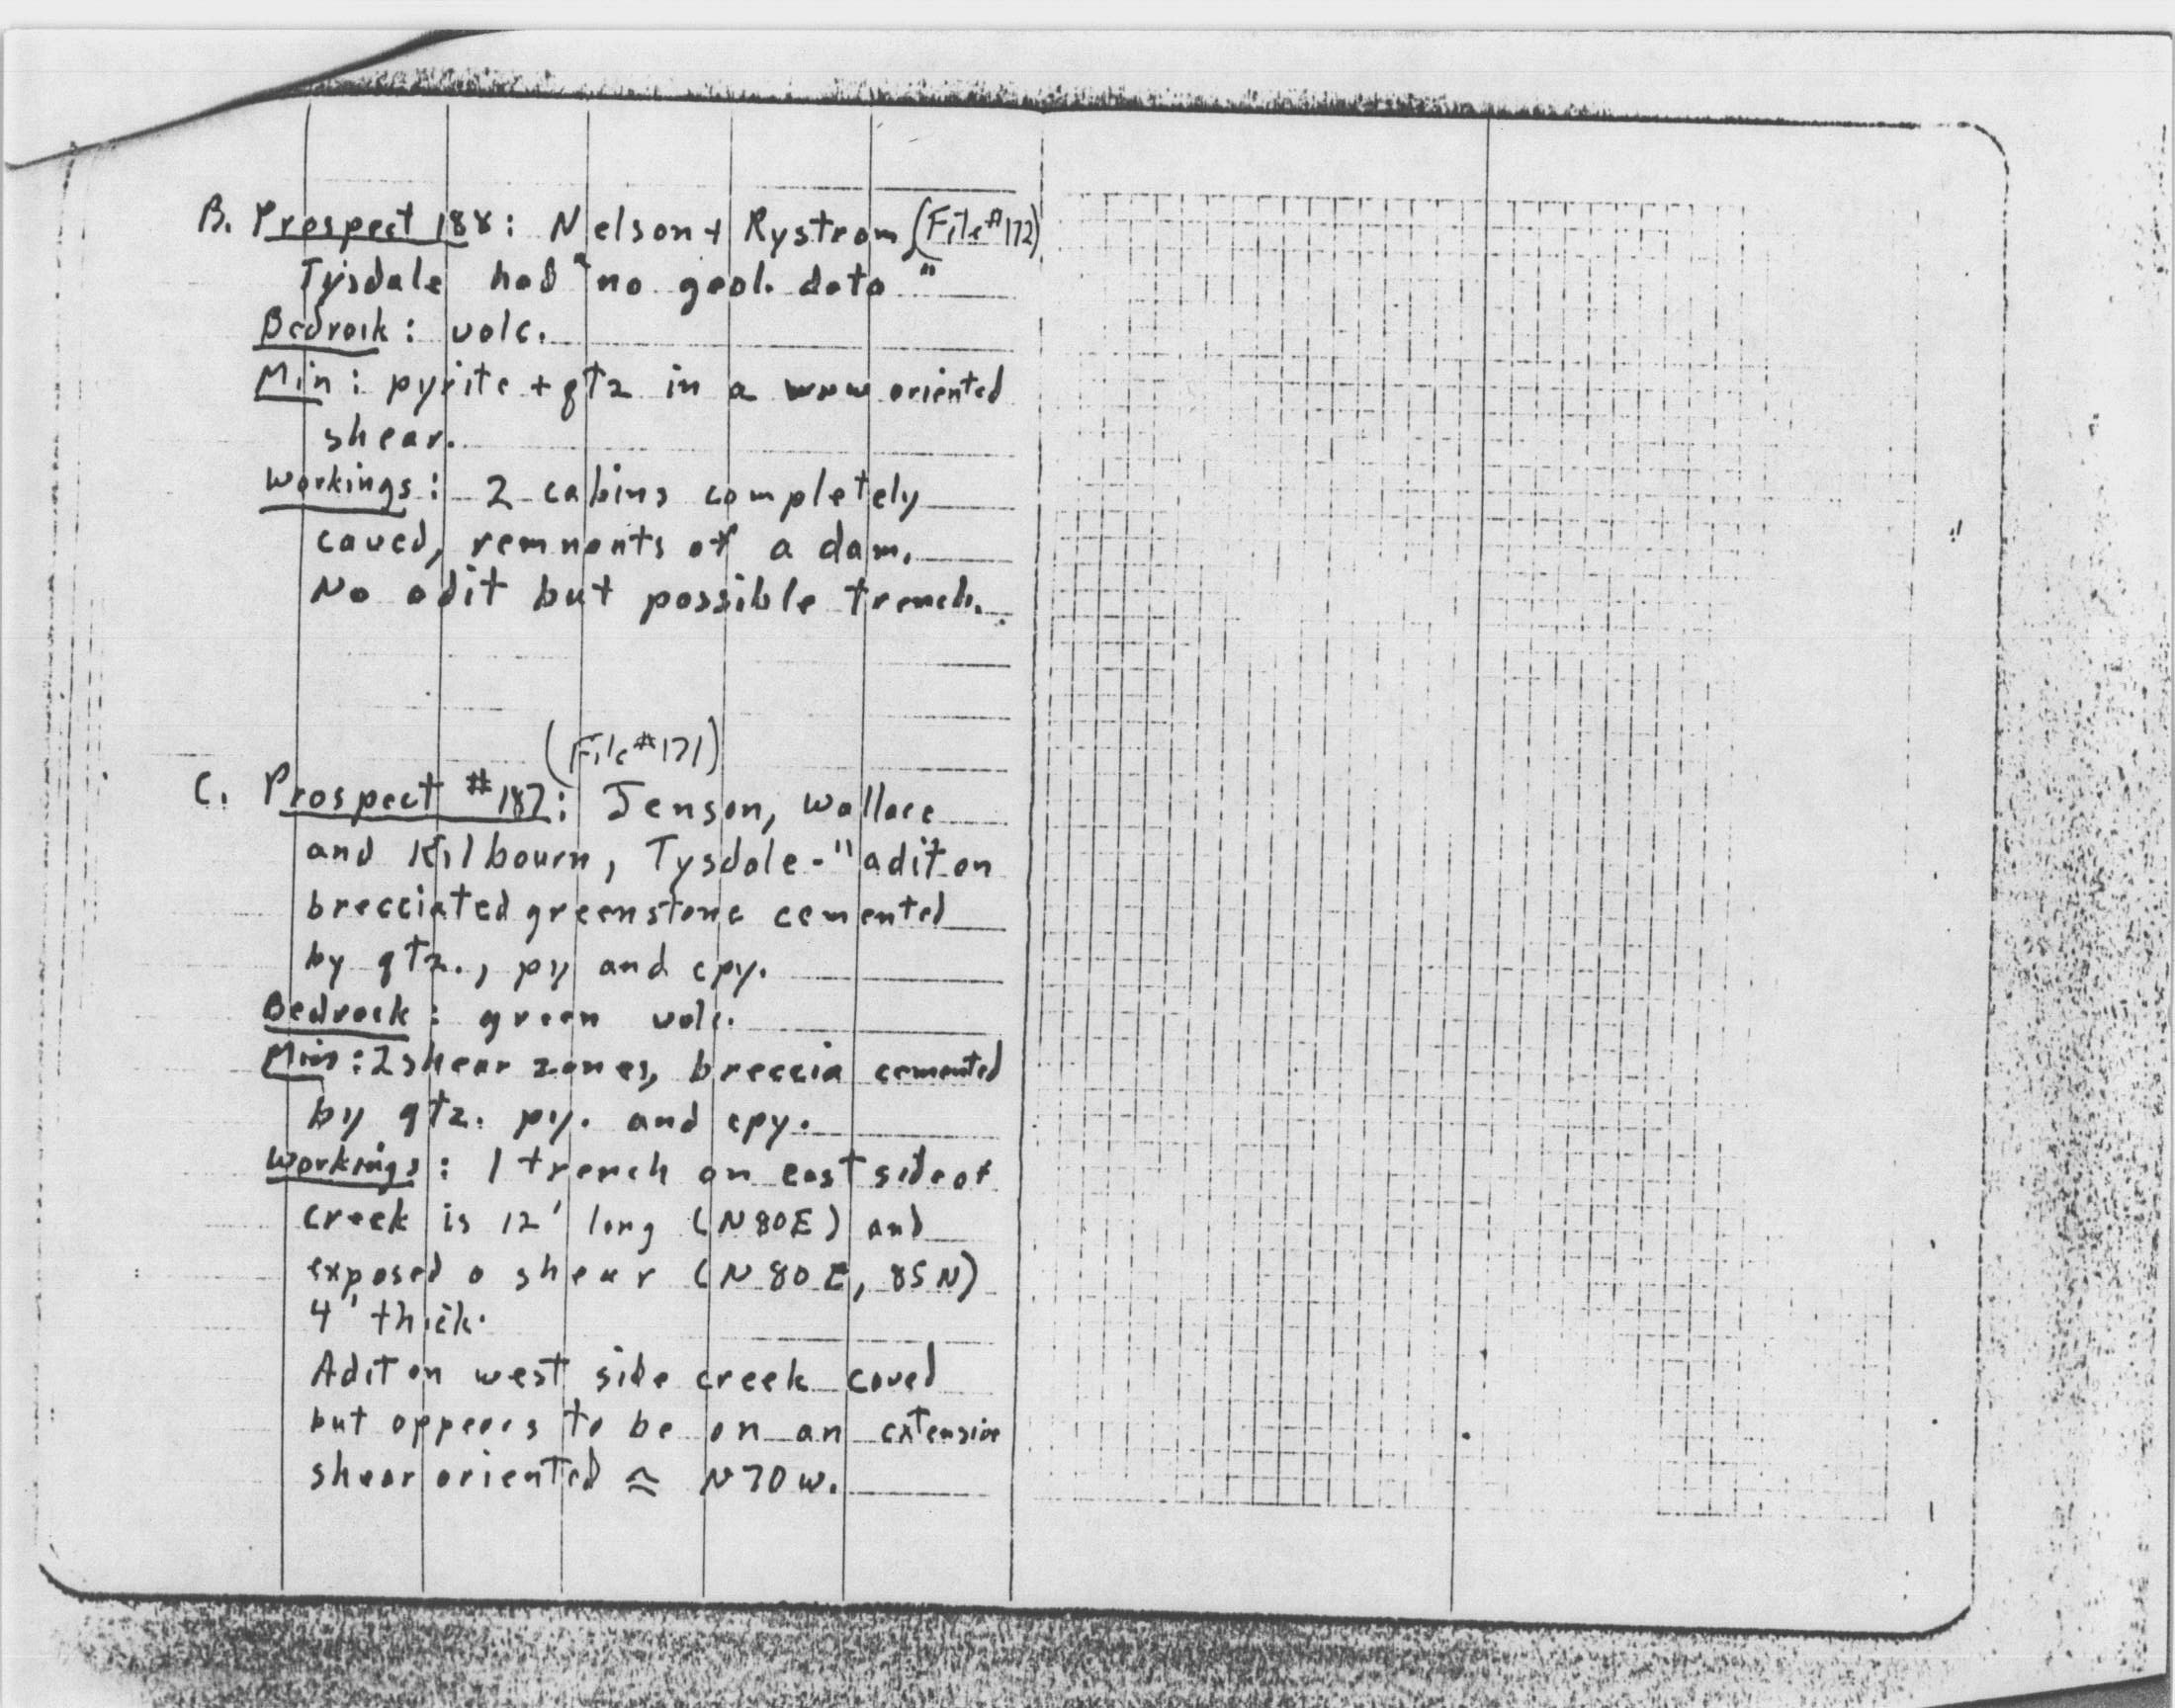 B. Prospect 188: Nelson + Rystrom (File #172)
Tysdale had "no geol. data"
Bedrock: volc.
Min: pyrite + qtz in a WNW oriented
shear.
Workings: 2 cabins completely
caved, remnants of a dam.
No adit but possible trench.
(File #171)
C. Prospect #187: Jenson, Wallace
and Kilbourn, Tysdale - "adit on
brecciated greenstone cemented
by qtz., py and cpy.
Bedrock: green volc.
Min: 2 shear zones, breccia cemented
by qtz. py. and cpy.
Workings: 1 trench on east side of
creek is 12' long (N80E) and
exposed a shear (N80E, 85N)
4' thick.
Adit on west side creek caved
but appears to be on an extensive
shear oriented ≈ N70W.